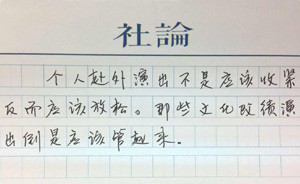 社論
个人赴外演出不是应该收紧
反而应该放松。那些文化政绩演
出倒是应该管起来.